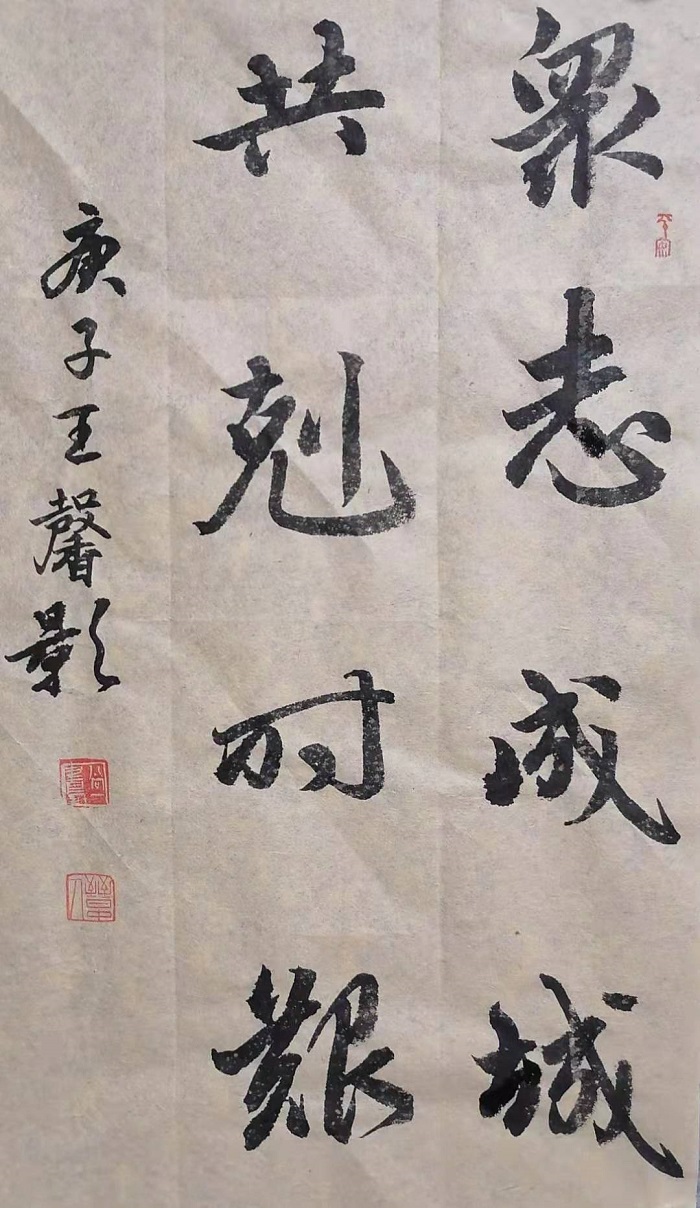 眾志成城
共剋时艱
庚子王馨影